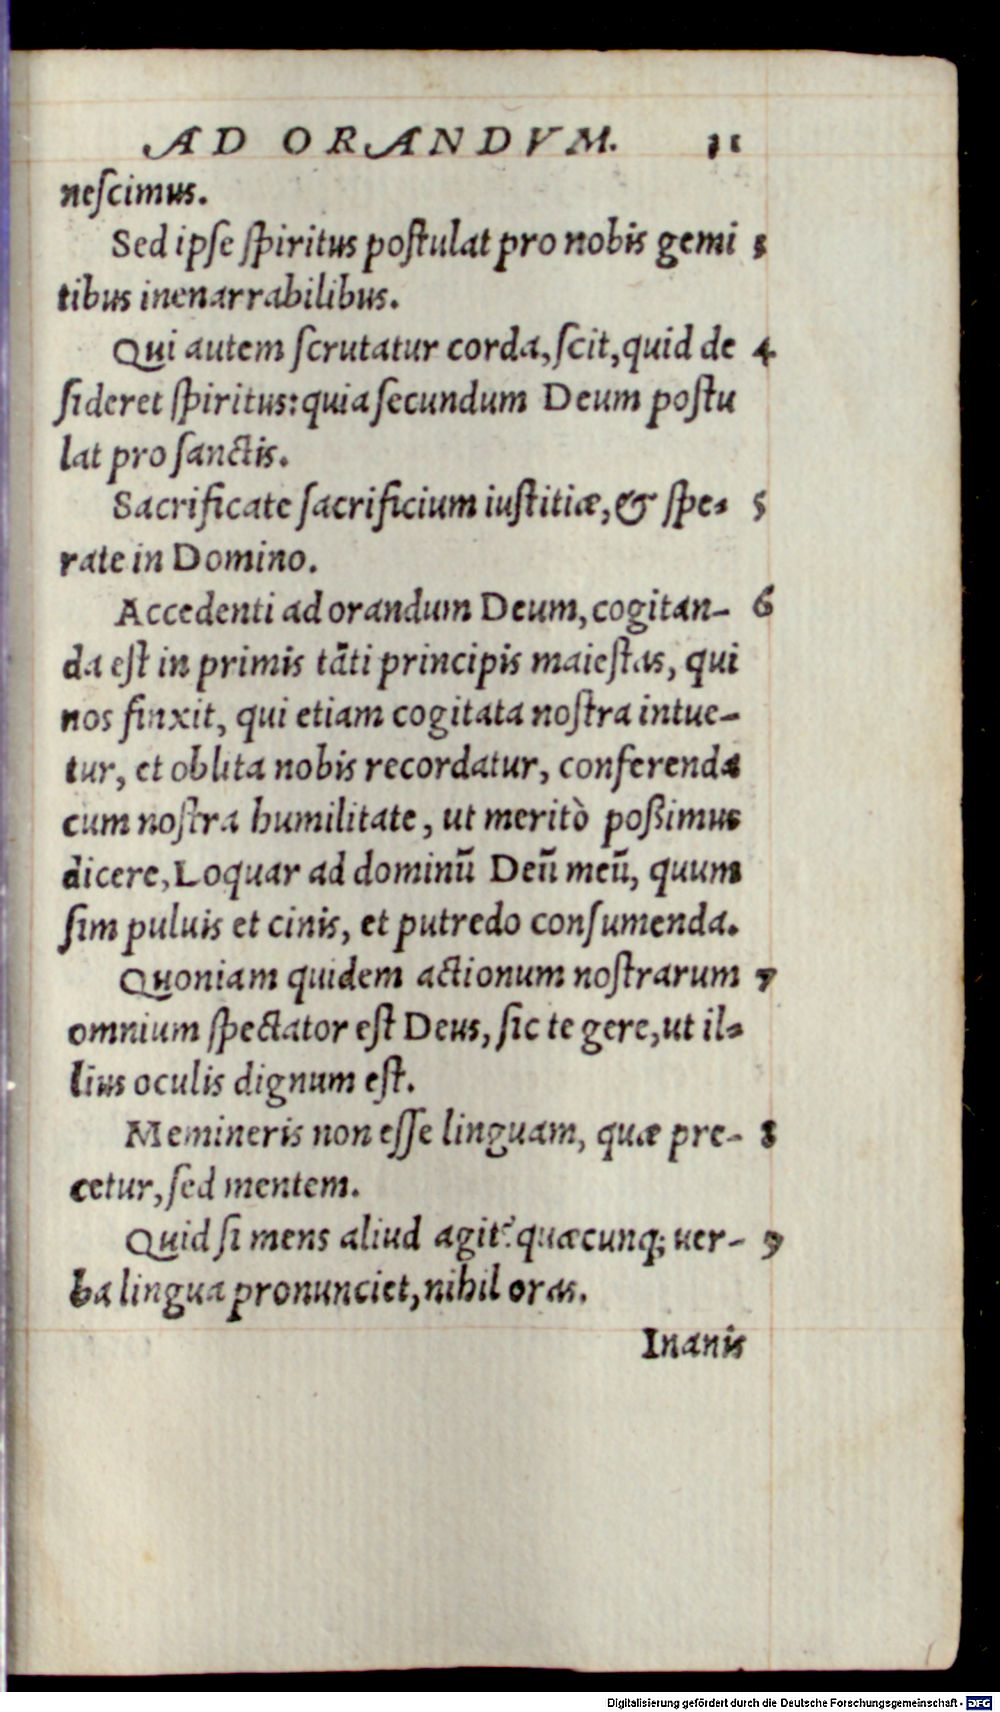 AD ORANDVM. 11
neſcimus.
Sed ipſe ſpiritus poſtulat pro nobis gemi 3
tibus inenarrabilibus.
Qui autem ſcrutatur corda, ſcit, quid de 4
ſideret ſpiritus: quia ſecundum Deum poſtu
lat pro ſanctis.
Sacrificate ſacrificium iuſtitiæ, & ſpe- 5
rate in Domino.
Accedenti ad orandum Deum, cogitan- 6
da eſt in primis tāti principis maieſtas, qui
nos finxit, qui etiam cogitata noſtra intue-
tur, et oblita nobis recordatur, conferenda
cum noſtra humilitate, ut meritò poßimus
dicere, Loquar ad dominū Deū meū, quum
ſim puluis et cinis, et putredo conſumenda.
Quoniam quidem actionum noſtrarum 7
omnium ſpectator eſt Deus, ſic te gere, ut il-
lius oculis dignum eſt.
Memineris non eſſe linguam, quæ pre- 8
cetur, ſed mentem.
Quid ſi mens aliud agit? quæcunq; uer- 9
ba lingua pronunciet, nihil oras.
Inanis
Digitalisierung gefördert durch die Deutsche Forschungsgemeinschaft - DFG